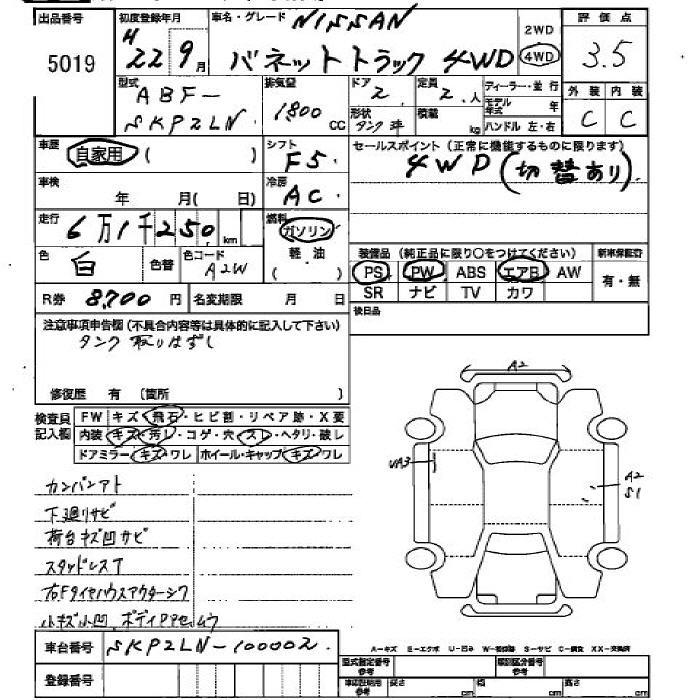 出品番号 初度登録年月 車名・グレード NISSAN 2WD 評価点
5019 H 22 9月 バネットトラック 4WD 4WD 3.5
型式 ABF- 排気量 ドア 2. 定員 2.人 ディーラー・並行 外装 内装
SKP2LN. 1800 CC 形状 積載 kg モデル年式 年 C C
ハンドル 左・右
車歴 自家用 ( ) シフト F5. セールスポイント (正常に機能するものに限ります)
4WD (切替あり)
車検 年 月( 日) 冷房 AC.
走行 6万1千250 km 燃料 ガソリン
色 白 色替 色コード A2W 軽油 ( ) 装備品 (純正品に限り○をつけてください) 新車保証書
PS PW ABS エアB AW 有・無
R券 8,700 円 名変期限 月 日 SR ナビ TV カワ
後日品
注意事項申告欄 (不具合内容等は具体的に記入して下さい)
タンク 取りはずし
修復歴 有 〔箇所 〕
検査員記入欄 FW キズ・飛石・ヒビ割・リペア跡・X要
内装 キズ・汚レ・コゲ・穴・スレ・ヘタリ・破レ
ドアミラー キズ・ワレ ホイール・キャップ キズ・ワレ
A2
UA3
A2
S1
カンバンアト
下廻りサビ
荷台キズ凹サビ
スタッドレスT
右Fタイヤハウスアウターシワ
小キズ小凹
車台番号 SKP2LN-100002
登録番号
A-キズ E-エクボ U-凹み W-補修跡 S-サビ C-腐食 XX-交換済
型式指定番号 参考 類別区分番号 参考
車両証明用 参考 長さ cm 幅 cm 高さ cm